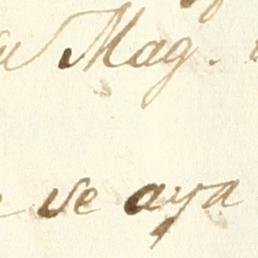 Mag.
se aya